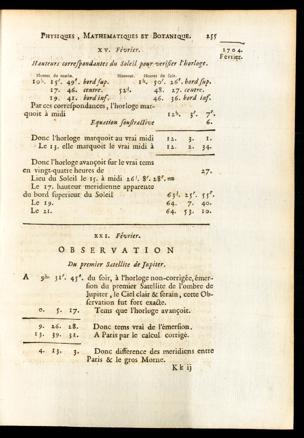 PHYSIQUES, MATHEMATIQUES ET BOTANIQUE. 255
1704.
Février.
XV. Février.
Hauteurs correspondantes du Soleil pour verifier l'horloge.
Heures du matin. Hauteur. Heures du soir.
10h. 15'. 49". bord sup. 1h. 50'. 26". bord sup.
17. 46. centre. 52d. 48. 27. centre.
19. 41. bord inf. 46. 36. bord inf.
Par ces correspondances, l'horloge mar-
quoit à midi 12h. 3'. 7".
Equation soustractive 6.
Donc l'horloge marquoit au vrai midi 12. 3. 1.
Le 13. elle marquoit le vrai midi à 12. 2. 34.
Donc l'horloge avançoit sur le vrai tems
en vingt-quatre heures de 27.
Lieu du Soleil le 15. à midi 26d. 8'. 28".
Le 17. hauteur meridienne apparente
du bord superieur du Soleil 63d. 25'. 55".
Le 19. 64. 7. 40.
Le 21. 64. 53. 10.
XXI. Février.
OBSERVATION
Du premier Satellite de Jupiter.
A 9h. 31'. 45". du soir, à l'horloge non-corrigée, émer-
sion du premier Satellite de l'ombre de
Jupiter, le Ciel clair & serain, cette Ob-
servation fut fort exacte.
0. 5. 17. Tems que l'horloge avançoit.
9. 26. 28. Donc tems vrai de l'émersion.
13. 39. 31. A Paris par le calcul corrigé.
4. 13. 3. Donc différence des meridiens entre
Paris & le gros Morne.
Kk ij